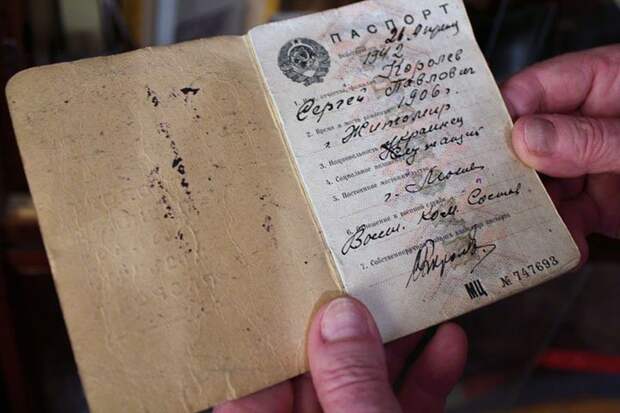 ПАСПОРТ
Выданный 26 апреля
1942
1. Имя, отчество, фамилия Королев
Сергей Павлович
2. Время и место рождения 1906 г.
г. Житомир
3. Национальность украинец
4. Социальное положение служащий
5. Постоянное местожительство
г. Москва
6. Отношение к военной службе
Воен. ком. Состав
7. Собственноручная подпись владельца паспорта
МЦ № 747693